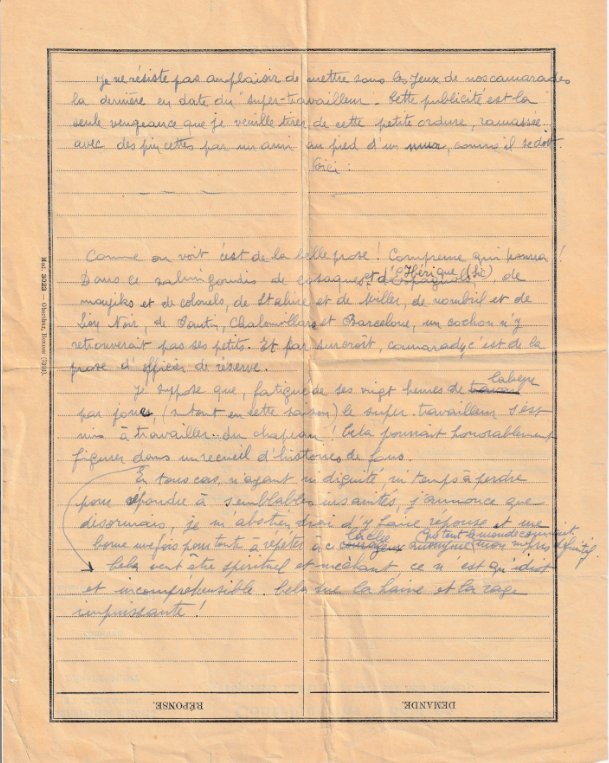 Je ne résiste pas au plaisir de mettre sous les yeux de nos camarades
la dernière en date du "super-travailleur. Cette publicité est la
seule vengeance que je veuille tirer de cette petite ordure, ramassée
avec des pincettes par un ami au pied d'un mur, comme il se doit.
Voici :
Comme on voit c'est de la belle prose ! Comprenne qui pourra !
Dans ce salmigondis de cosaques et d'Ibérique (sic), de
moujiks et de colonels, de Staline et de Miller, de nombril et de
Noir, de Pantin, Chalonvillars et Barcelone, un cochon n'y
retrouverait pas ses petits. Et par surcroît, camarade, c'est de la
prose d'officier de réserve.
Je suppose que, fatigué de ses vingt heures de travail labeur
par jour, (surtout en cette saison) le super-travailleur s'est
mis à travailler.. du chapeau ! Cela pourrait honorablement
figurer dans un recueil d'histoires de fous.
En tous cas, n'ayant ni dignité ni temps à perdre
pour répondre à semblables insanités, j'annonce que
désormais, je m'abstiendrai d'y faire réponse et une
bonne une fois pour tout à répéter à ce courageux lâche anonyme (que tout le monde connaît) mon mépris définitif.
Cela veut être spirituel et méchant, ce n'est qu'idiot
et incompréhensible. Cela sue la haine et la rage
impuissante !
Mod. 3023
RÉPONSE.
DEMANDE.